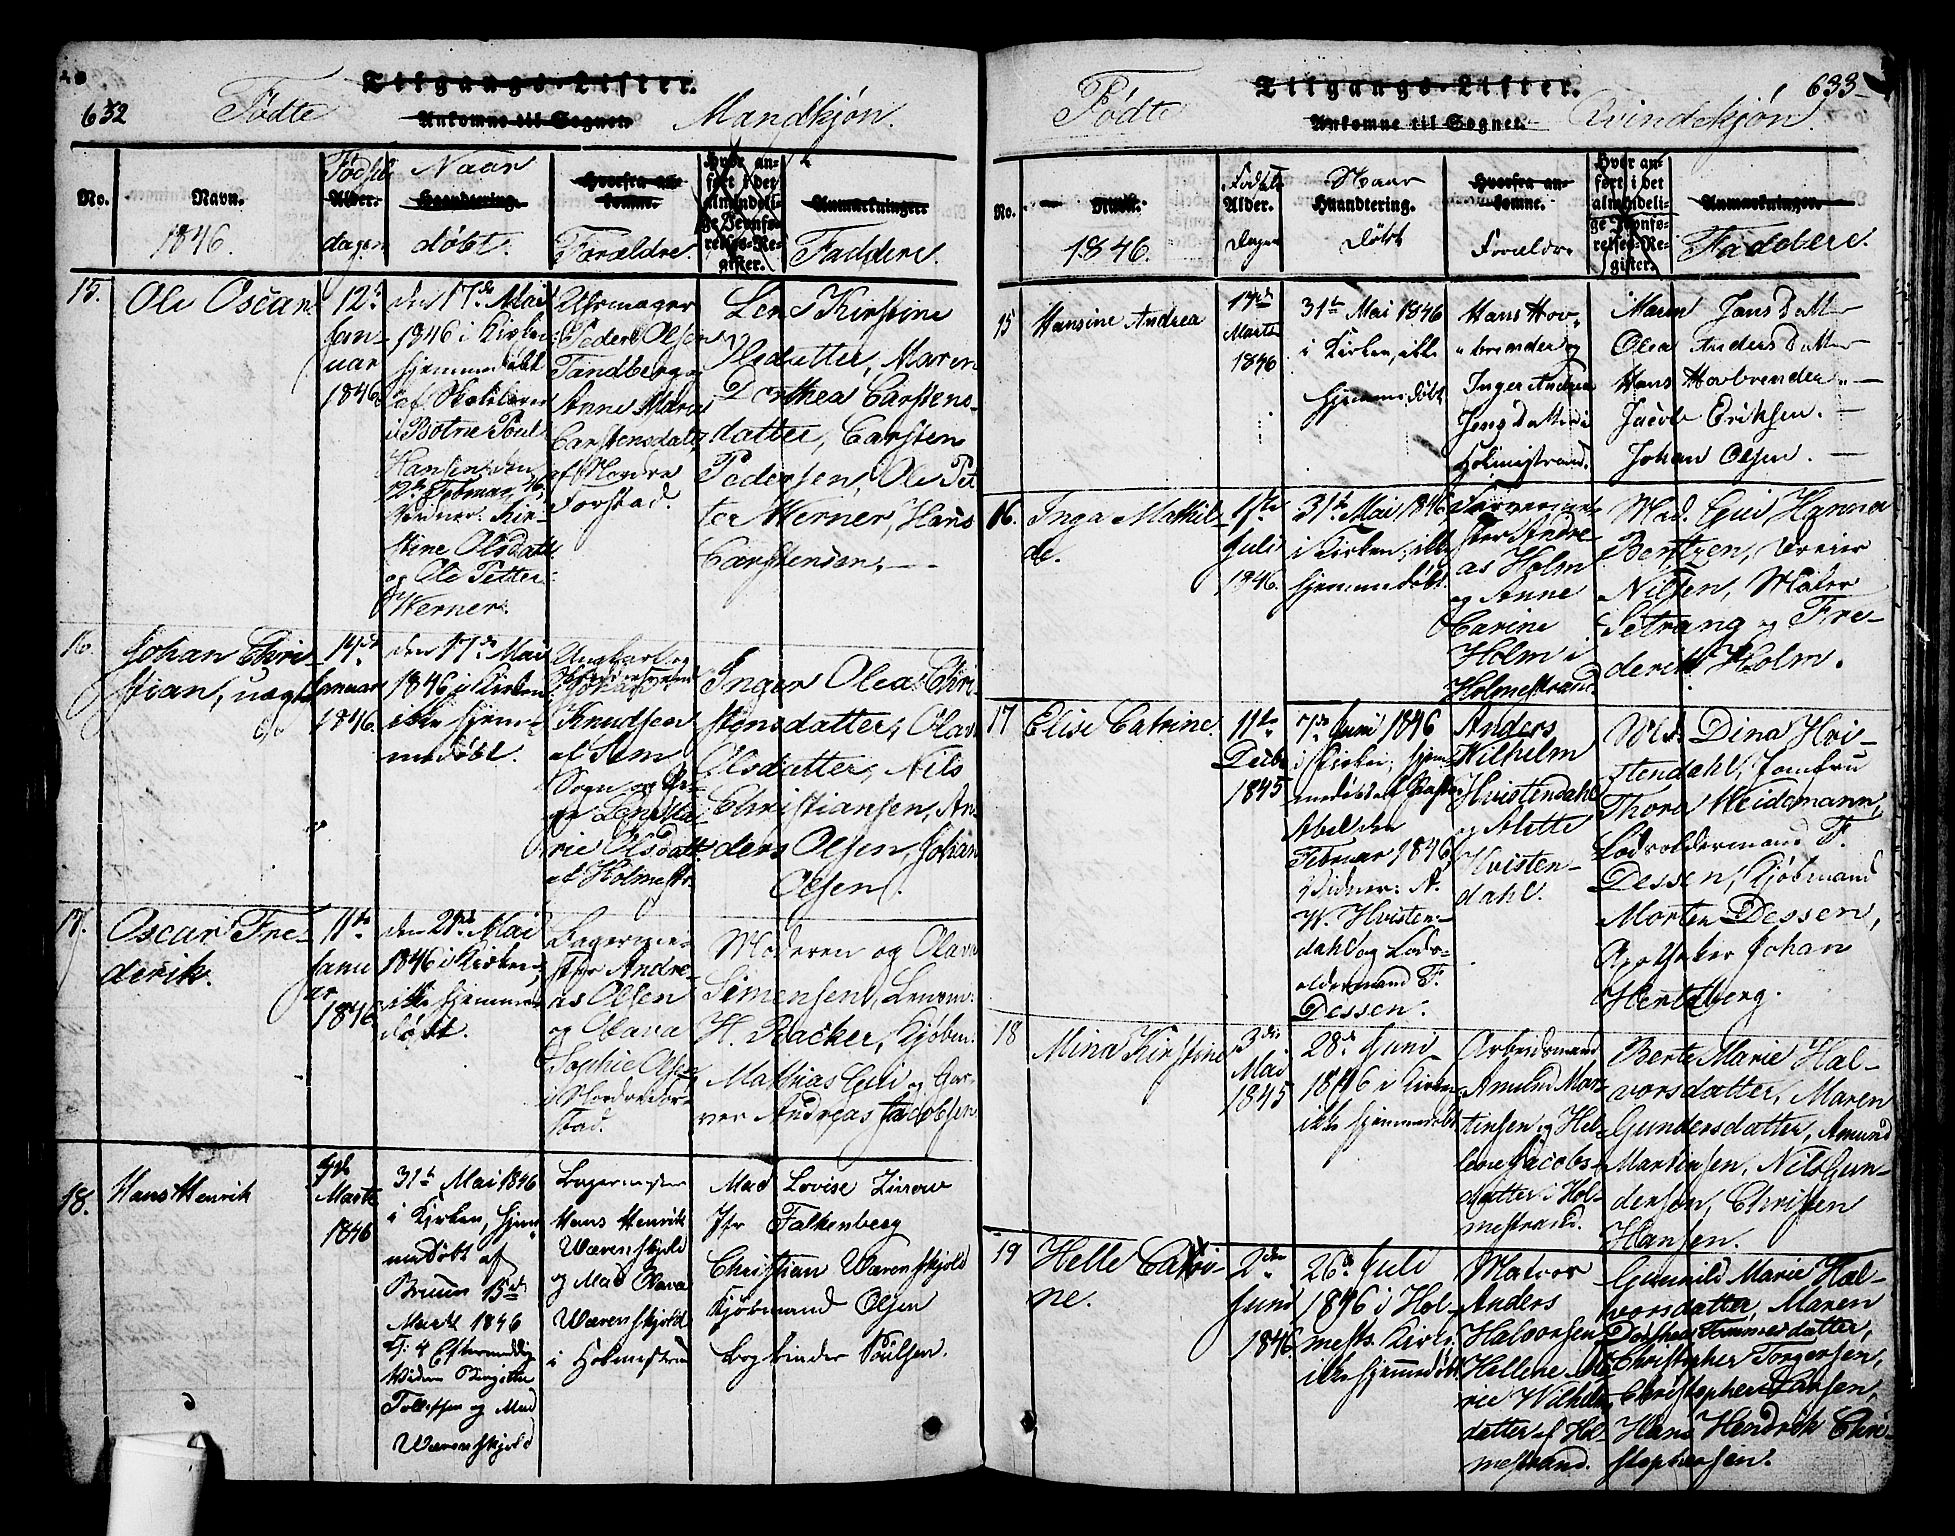 632
Födte
Tilgangs-Lister.
Ankomne til Sognet.
Mandkjøn.
No.
Navn.
1846.
Fødsels
Alder.
dagen
Naar
Haandtering.
døbt.
Hvorfra ankomne.
Forældre.
Hvor anført i det almindelige Jevnførelses-Register.
Anmærkninger.
Faddere.
15.
Ole Oscar
12te
Januar
1846
den 17de Mai
1846 i Kirken
hjemmedøbt
af Skolelærer
i Botne Poul
Hansen den
Februar 46,
Vidner: Kirstine Olsdatt
og Ole Petter
Werner.
Peder Olsen
Tandberg og
Anne Maria
Carstensdatt
af Nordre
Forstad.
Lene Kirstine
Olsdatter, Maren
Dorthea Carstensdatter, Carsten
Pedersen, Ole Petter Werner, Hans
Carstensen.
16.
Johan Christian, uægte
Januar
1846
den 17de Mai
1846 i Kirken
ikke hjemmedøbt.
Ungkarl og
Johan
Knudsen
af Sem
Sogn og Pige Lene Marie Olsdatt
af Holmestr.
Inger Olea Christensdatter, Olava
Olsdatter, Nils
Christiansen, Anders Olsen, Johan
Olsen.
17.
Oscar Frederik.
11te
Januar
1846
den 21de Mai
1846 i Kirken
ikke hjemmedøbt.
Bagermester Andreas Olsen
og Olava
Sophie Olsen
i Nordre Forstad.
Moderen og Olava
Simensen,
H. Backer, Kjøbm.
Mathias Gui og Garver Andreas Jacobsen
18.
Hans Henrik
Marts
1846
31te Mai 1846
i Kirken, hjemmedøbt af
Bruun 15de
Marts 1846
Kl: 4 Eftermiddag
Vidner Birgithe
Tollefsen og Mad
Wærenskjold
Bagermester
Hans Henrik
Wærenskjold
og Mad Olava
Wærenskjold
i Holmestrand
Mad Lovise Zirow
Jfr Falkenberg
Christian Wærenskjold
Kjøbmand Olsen
Bogbinder Poulsen.
633
Fødte
Tilgangs-Lister.
Ankomne til Sognet.
Qvindekjøn.
No.
Navn.
1846.
Fødsels
Alder.
Dagen
Naar
Haandtering.
døbt
Hvorfra ankomne.
Forældre
Hvor anført i det almindelige Jevnførelses-Register.
Anmærkninger.
Faddere.
15
Hansine Andrea
17de
Marts
1846
31te Mai 1846
i Kirken, ikke
hjemmedøbt
Hans Hovbrender og
Inger Andrea
Jensdatter i
Holmestrand.
Maren Jansdatter
Olea Andersdatter
Hans Hovbrender
Jacob Eriksen.
Johan Olsen.
16.
Inga Mathilde.
1ste
Juli
1846.
31te Mai 1846
i Kirken, ikke
hjemmedøbt
Andreas Holm
og Anne
Carine
Holm i
Holmestrand
Mad. Gui Hanna
Berntzen,
Nilsen, Maler
Setrang og Frederik Holm.
17
Elise Catrine.
11te
Decbr
1845
7de Juni 1846
i Kirken, hjemmedøbt af Pastor
Abel den
Februar 1846,
Vidner: A.
W. Hvistendahl og Lodsoldermand F.
Dessen.
Anders
Wilhelm
Hvistendahl
og Alette
Hvistendahl.
Md. Dina Hvistendahl, Jomfru
Thora Heidemann,
Lodsoldermand F.
Dessen, Kjøbmand
Morten Dessen,
Apotheker Johan
Hertzberg.
18
Mina Kirstine
3die
Mai
1845
28de Juni
1846 i Kirken
ikke hjemmedøbt
Arbeidsmand
Amund Martinsen og Hellene Jacobsdatter i Holmestrand.
Berte Marie Halvorsdatter, Maren
Gundersdatter, Amund
Martinsen, Nils Gundersen, Christen
Hansen.
19
Helle Catrine.
2den
Juni
1846.
26de Juli
1846 i Holmests. Kirke,
ikke hjemmedøbt
Matros
Anders
Halvorsen
Hellene Marie Wilhelmsdatter af Holmestrand.
Gunnild Marie Halvorsdatter, Maren
Dorthea Tommesdatter,
Christopher Torgersen,
Christopher Larsen,
Hans Hendrik Christophersen.